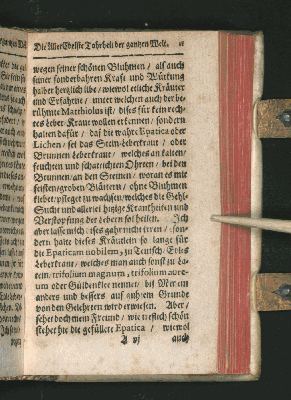 Die Aller Edelste Tohrheit der gantzen Welt. 11
wegen seiner schönen Bluhmen / als auch
seiner sonderbahren Kraft und Würkung
halber herzlich libe / wiewol etliche Kräuter
und Erfahrne / unter welchen auch der be-
rühmte Matthiolus ist / dises für kein rech-
tes Leber-Kraut wollen erkennen / sondern
halten dafür / daß die wahre Epatica oder
Lichen / sei das Stein-Leberkraut / oder
Brunnen-Leberkraut / welches an kalten /
feuchten und schattichten Ohrten / bei den
Brunnen / an den Steinen / woran es mit
feisten / groben Blättern / ohne Bluhmen
klebet / pfleget zu wachsen / welches die Gehl-
Sucht und allerlei hitzige Krankheiten und
Verstopfung der Lebern sol heilen. Ich
aber lasse mich / ises gahr nicht irren / son-
dern halte dieses Kräutlein so lange für
die Epaticam nobilem, zu Teutsch / Edles
Leberkraut / welches man auch sonst zu La-
tein / trifolium magnum, trifolium aure-
um oder Güldenklee nennet / biß Mir ein
anders und bessers auf guhtem Grunde
von den Gelehrten wird erwiesen. Aber /
sehet doch mein Freund / wie trefflich schön
stehet hie die gefüllete Epatica / wiewol
A vj auch